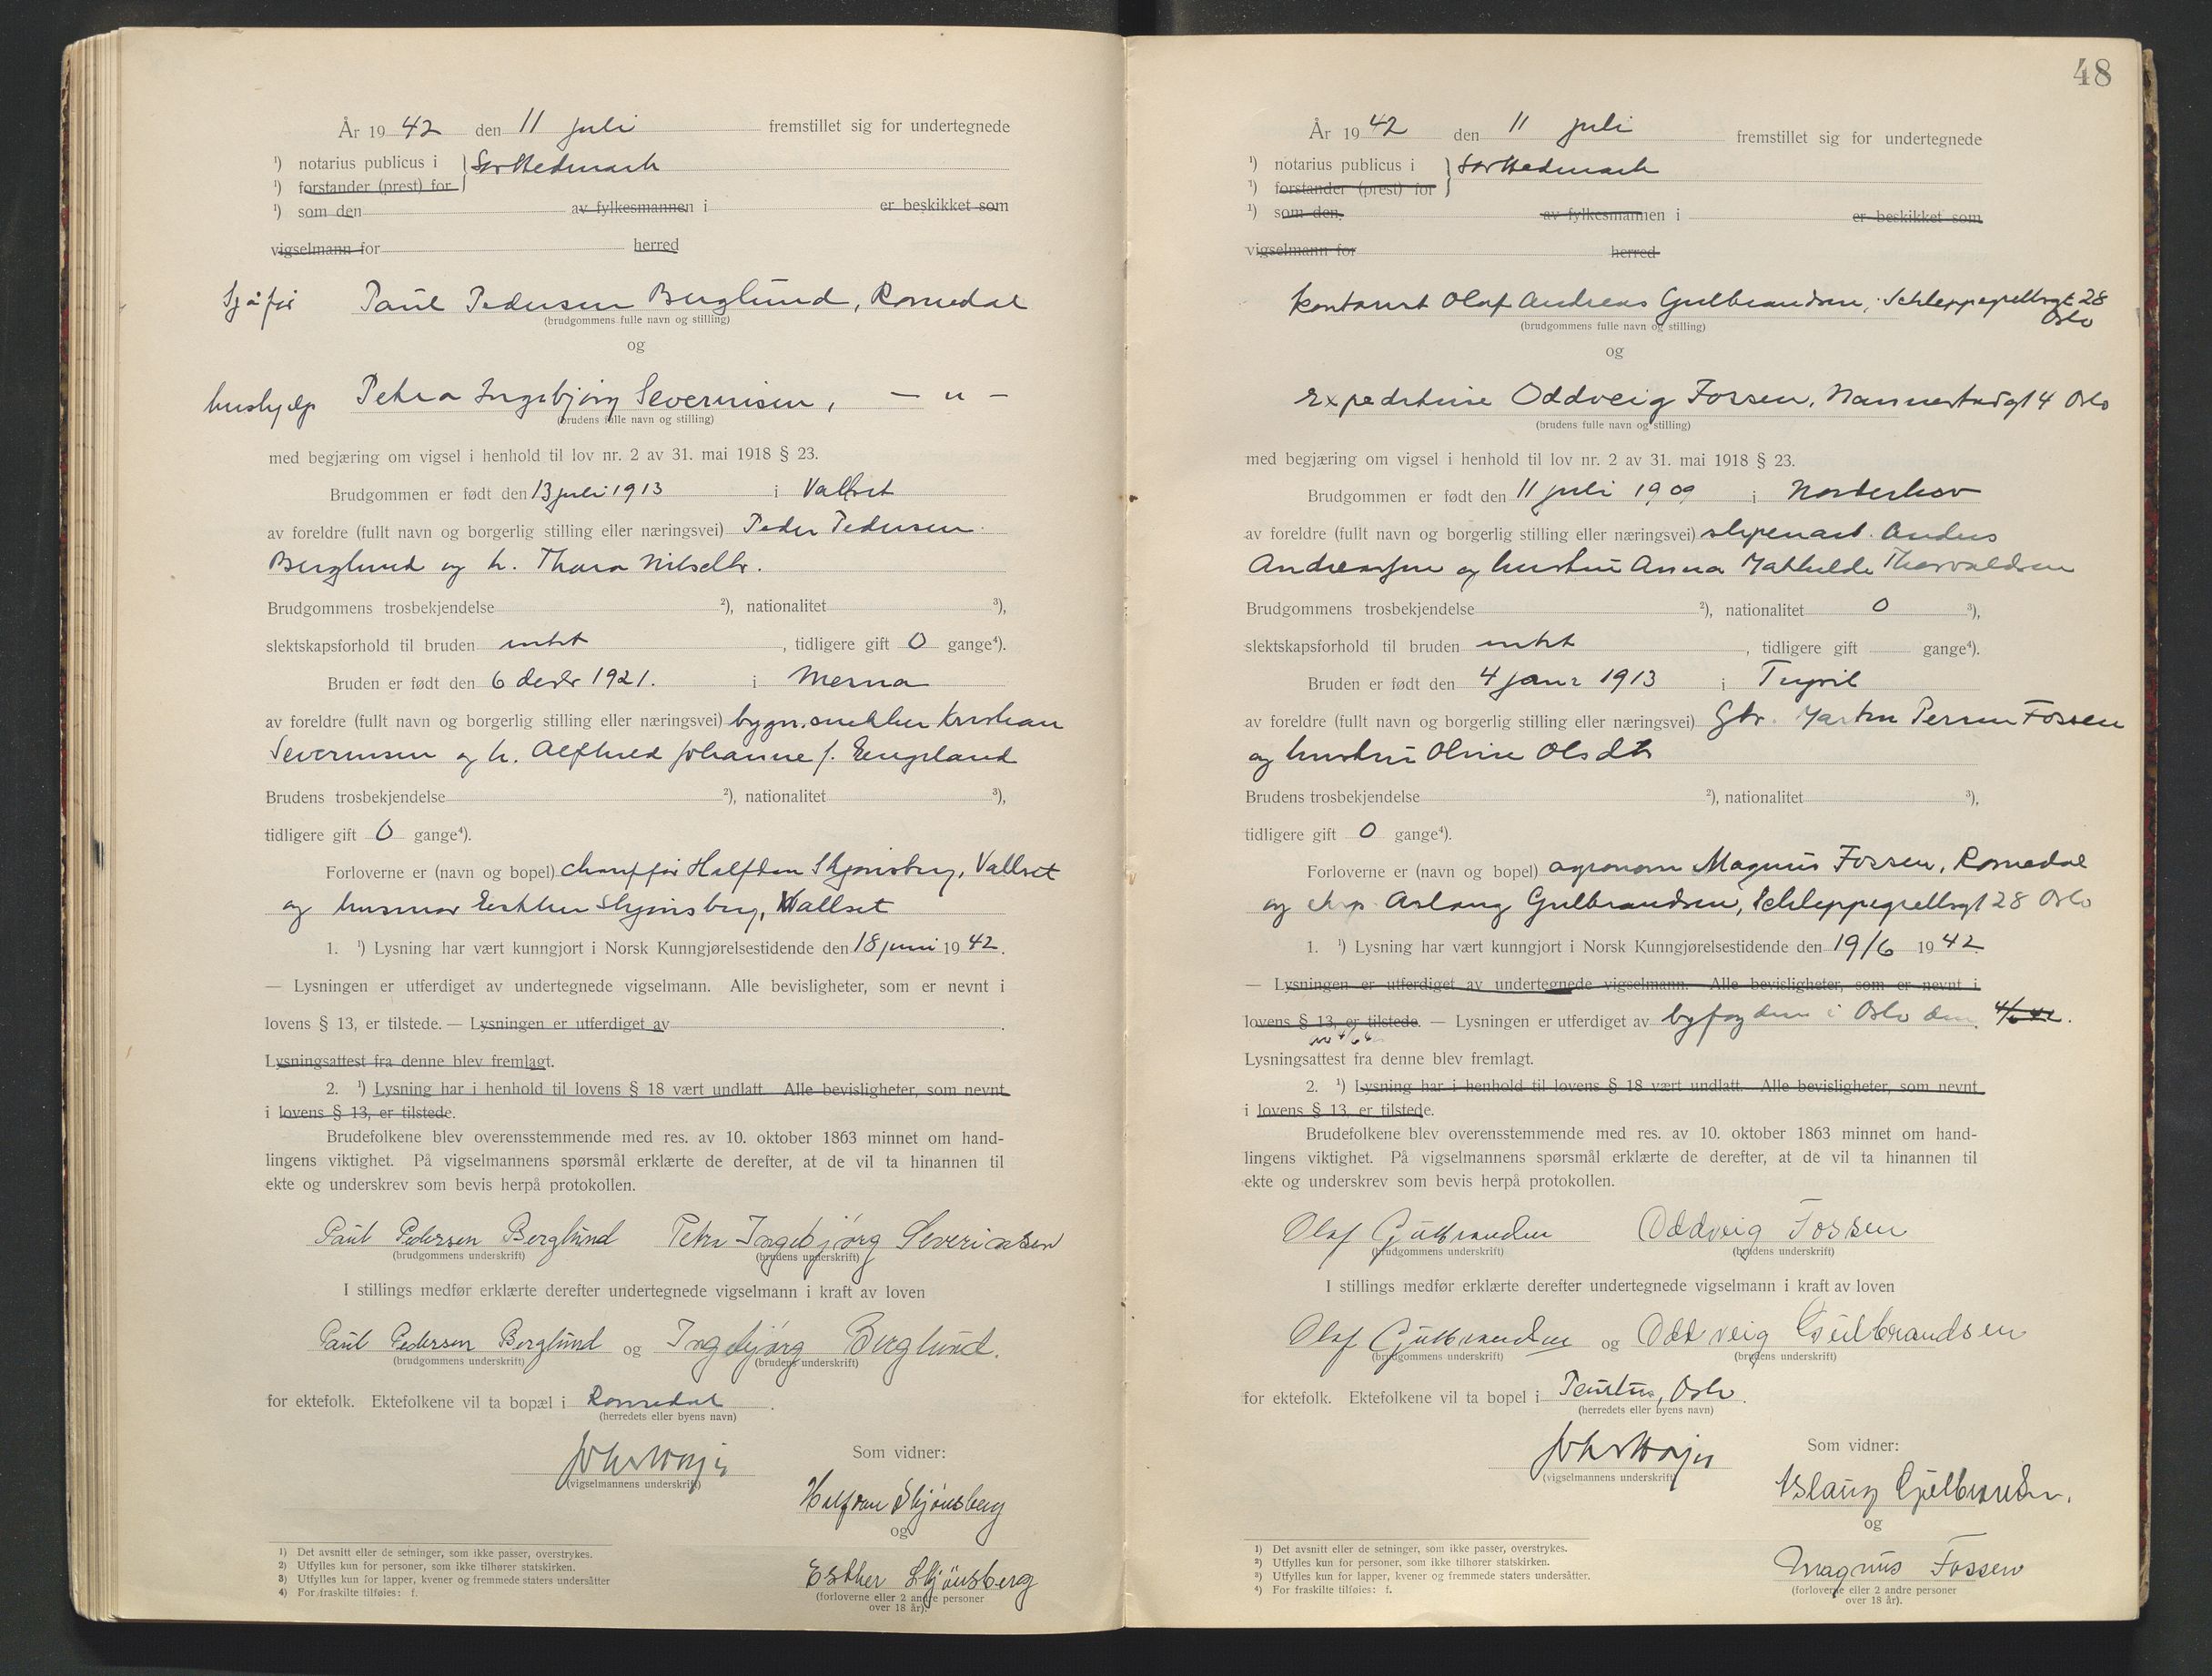 År 1942 den 11 juli fremstillet sig for undertegnede
¹) notarius publicus i } Sør Hedmark
¹) forstander (prest) for
¹) som den av fylkesmannen i er beskikket som
vigselmann for herred
Sjåfør Paul Pedersen Berglund, Romedal
(brudgommens fulle navn og stilling)
og
hushjelp Petra Ingebjørg Severinsen, — " —
(brudens fulle navn og stilling)
med begjæring om vigsel i henhold til lov nr. 2 av 31. mai 1918 § 23.
Brudgommen er født den 13 juli 1913 i Vallset
av foreldre (fullt navn og borgerlig stilling eller næringsvei) Peder Pedersen
Berglund og h. Thora Nilsdtr.
Brudgommens trosbekjendelse ²), nationalitet ³),
slektskapsforhold til bruden intet, tidligere gift 0 gange⁴).
Bruden er født den 6 desbr 1921. i
av foreldre (fullt navn og borgerlig stilling eller næringsvei) bygn.snekker Kristian
Severinsen og h. Alfhild Johanne f. Engeland
Brudens trosbekjendelse ²), nationalitet ³),
tidligere gift 0 gange⁴).
Forloverne er (navn og bopel) chauffør Halfdan Skjønsberg, Vallset
og husmor Esther Skjønsberg, Vallset
1. ¹) Lysning har vært kunngjort i Norsk Kunngjørelsestidende den 18 juni 1942.
— Lysningen er utferdiget av undertegnede vigselmann. Alle bevisligheter, som er nevnt i
lovens § 13, er tilstede. — Lysningen er utferdiget av .
Lysningsattest fra denne blev fremlagt.
2. ¹) Lysning har i henhold til lovens § 18 vært undlatt. Alle bevisligheter, som nevnt
i lovens § 13, er tilstede.
Brudefolkene blev overensstemmende med res. av 10. oktober 1863 minnet om hand-
lingens viktighet. På vigselmannens spørsmål erklærte de derefter, at de vil ta hinannen til
ekte og underskrev som bevis herpå protokollen.
Paul Pedersen Berglund Petra Ingebjørg Severinsen
(brudgommens underskrift) (brudens underskrift)
I stillings medfør erklærte derefter undertegnede vigselmann i kraft av loven
Paul Pedersen Berglund og Ingebjørg Berglund.
(brudgommens underskrift) (brudens underskrift)
for ektefolk. Ektefolkene vil ta bopæl i Romedal.
(herredets eller byens navn)
(vigselmannens underskrift)
Som vidner:
Halfdan Skjønsberg
og
Esther Skjønsberg
(forloverne eller 2 andre personer
over 18 år).
1) Det avsnitt eller de setninger, som ikke passer, overstrykes.
2) Utfylles kun for personer, som ikke tilhører statskirken.
3) Utfylles kun for lapper, kvener og fremmede staters undersåtter
4) For fraskilte tilføies: f.
48
År 1942 den 11 juli fremstillet sig for undertegnede
¹) notarius publicus i } Sør Hedmark
¹) forstander (prest) for
¹) som den av fylkesmannen i er beskikket som
vigselmann for herred
kontorist Olaf Andreas Gulbrandsen, Schleppegrellsgt 28
Oslo
(brudgommens fulle navn og stilling)
og
Expeditrise Oddveig Fossen, Nannestadgt 4 Oslo
(brudens fulle navn og stilling)
med begjæring om vigsel i henhold til lov nr. 2 av 31. mai 1918 § 23.
Brudgommen er født den 11 juli 1909 i Norderhov
av foreldre (fullt navn og borgerlig stilling eller næringsvei) sliperiarb. Anders
Andreassen og hustru Anna Mathilde Thorvaldsen
Brudgommens trosbekjendelse ²), nationalitet 0 ³),
slektskapsforhold til bruden intet, tidligere gift gange⁴).
Bruden er født den 4 januar 1913 i
av foreldre (fullt navn og borgerlig stilling eller næringsvei) Gbr. Martin Persen Fossen
og hustru Oline Olsdtr
Brudens trosbekjendelse ²), nationalitet ³),
tidligere gift 0 gange⁴).
Forloverne er (navn og bopel) agronom Magnus Fossen, Romedal
og Aslaug Gulbrandsen, Schleppegrellsgt 28 Oslo
1. ¹) Lysning har vært kunngjort i Norsk Kunngjørelsestidende den 19/6 1942.
— Lysningen er utferdiget av undertegnede vigselmann. Alle bevisligheter, som er nevnt i
lovens § 13, er tilstede. — Lysningen er utferdiget av byfogden i Oslo den
Lysningsattest fra denne blev fremlagt.
2. ¹) Lysning har i henhold til lovens § 18 vært undlatt. Alle bevisligheter, som nevnt
i lovens § 13, er tilstede.
Brudefolkene blev overensstemmende med res. av 10. oktober 1863 minnet om hand-
lingens viktighet. På vigselmannens spørsmål erklærte de derefter, at de vil ta hinannen til
ekte og underskrev som bevis herpå protokollen.
Olaf Gulbrandsen Oddveig Fossen
(brudgommens underskrift) (brudens underskrift)
I stillings medfør erklærte derefter undertegnede vigselmann i kraft av loven
Olaf Gulbrandsen og Oddveig Gulbrandsen
(brudgommens underskrift) (brudens underskrift)
for ektefolk. Ektefolkene vil ta bopel i Oslo.
(herredets eller byens navn)
(vigselmannens underskrift)
Som vidner:
Aslaug Gulbrandsen.
og
Magnus Fossen
(forloverne eller 2 andre personer
over 18 år).
1) Det avsnitt eller de setninger, som ikke passer, overstrykes.
2) Utfylles kun for personer, som ikke tilhører statskirken.
3) Utfylles kun for lapper, kvener og fremmede staters undersåtter.
4) For fraskilte tilføies: f.